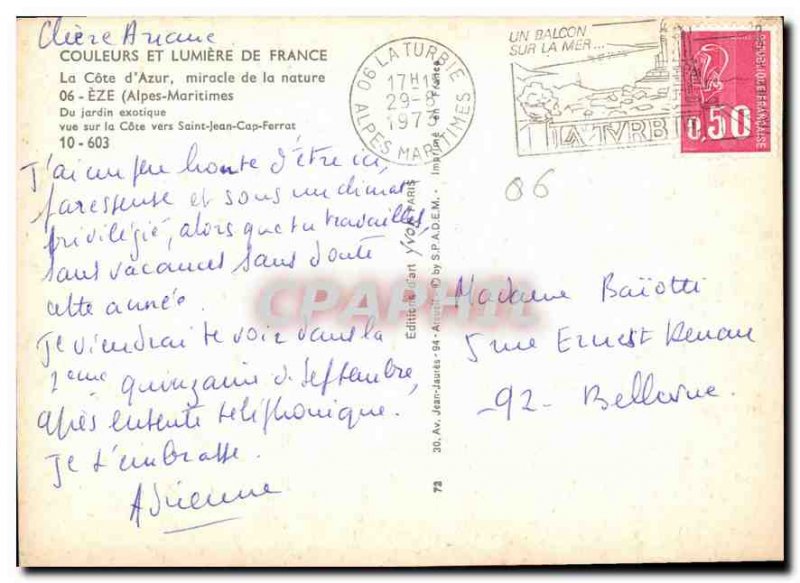 Chère Ariane
COULEURS ET LUMIÈRE DE FRANCE
La Côte d'Azur, miracle de la nature
06 - ÈZE (Alpes-Maritimes
Du jardin exotique
vue sur la Côte vers Saint-Jean-Cap-Ferrat
10 - 603
J'ai un peu honte d'être ici,
paresseuse et sous un climat
privilégié, alors que tu travailles,
sans vacances sans doute
cette année.
Je viendrai te voir dans la
2ème quinzaine de Septembre,
après entente téléphonique.
Je t'embrasse.
Adrienne
06 LA TURBIE
17H15
29-8
1973
ALPES MARITIMES
UN BALCON
SUR LA MER...
LA TVRB
0,50
REPUBLIQUE FRANÇAISE
06
Madame Baïotti
5 rue Ernest Renan
92 - Bellevue.
Editions d'art YVON PARIS
30, Av. Jean-Jaurès - 94 - Arcueil © by S.P.A.D.E.M. - Imprimé en France
72
CPAPHIL